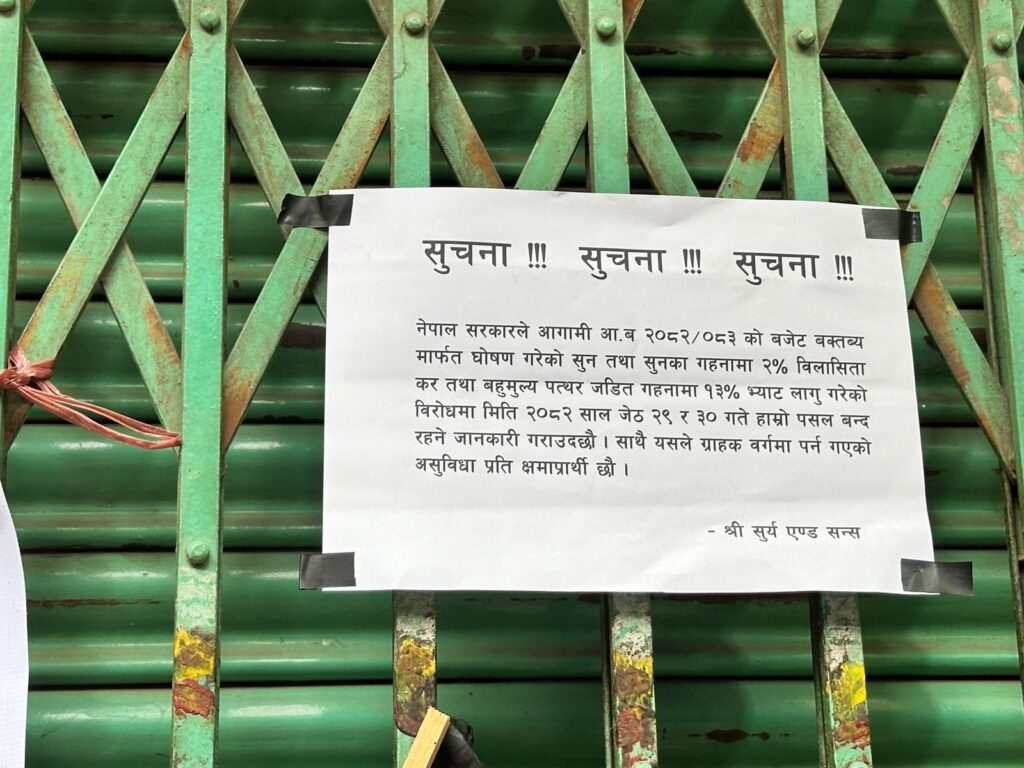 सुचना !!! सुचना !!! सुचना !!!
नेपाल सरकारले आगामी आ.ब २०८२/०८३ को बजेट बक्तब्य
मार्फत घोषण गरेको सुन तथा सुनका गहनामा २% विलासिता
कर तथा बहुमुल्य पत्थर जडित गहनामा १३% भ्याट लागु गरेको
विरोधमा मिति २०८२ साल जेठ २९ र ३० गते हाम्रो पसल बन्द
रहने जानकारी गराउदछौ । साथै यसले ग्राहक वर्गमा पर्न गएको
असुविधा प्रति क्षमाप्रार्थी छौ ।
- श्री सुर्य एण्ड सन्स